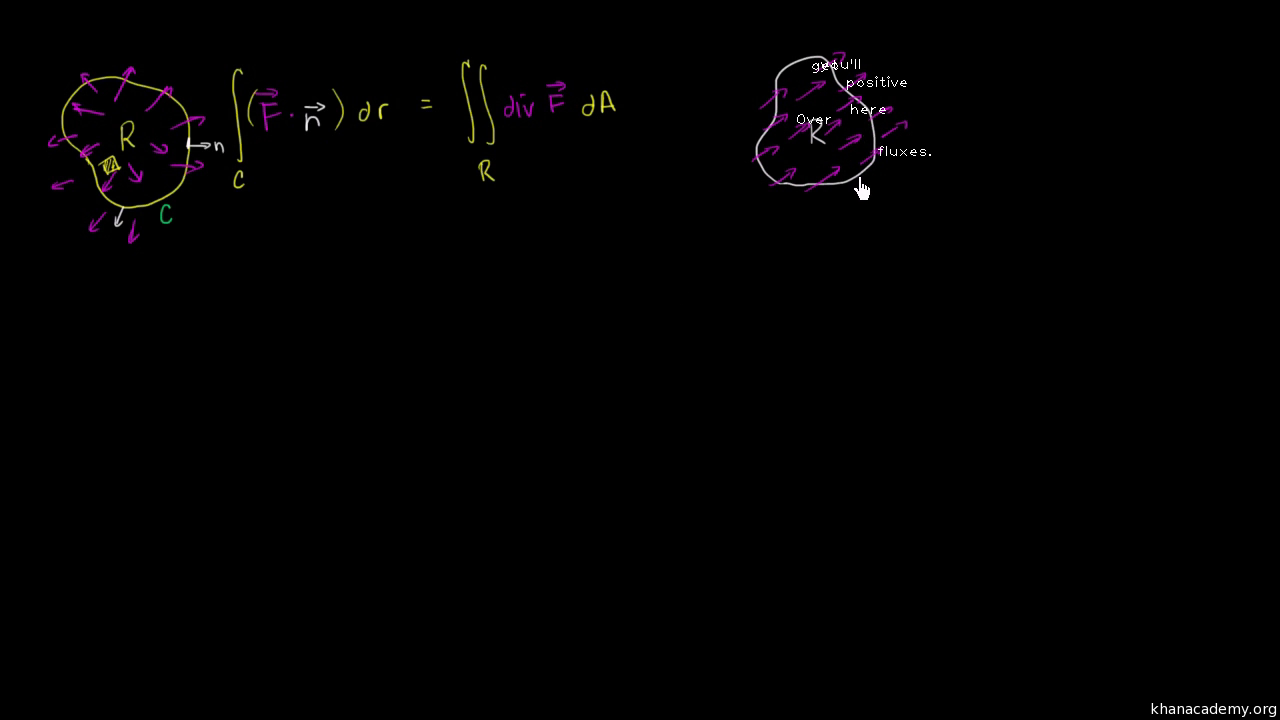 R
n
C
∫_C (F⃗ · n⃗) dr = ∬_R div F⃗ dA
you'll
get
positive
here
Over
R
fluxes.
khanacademy.org